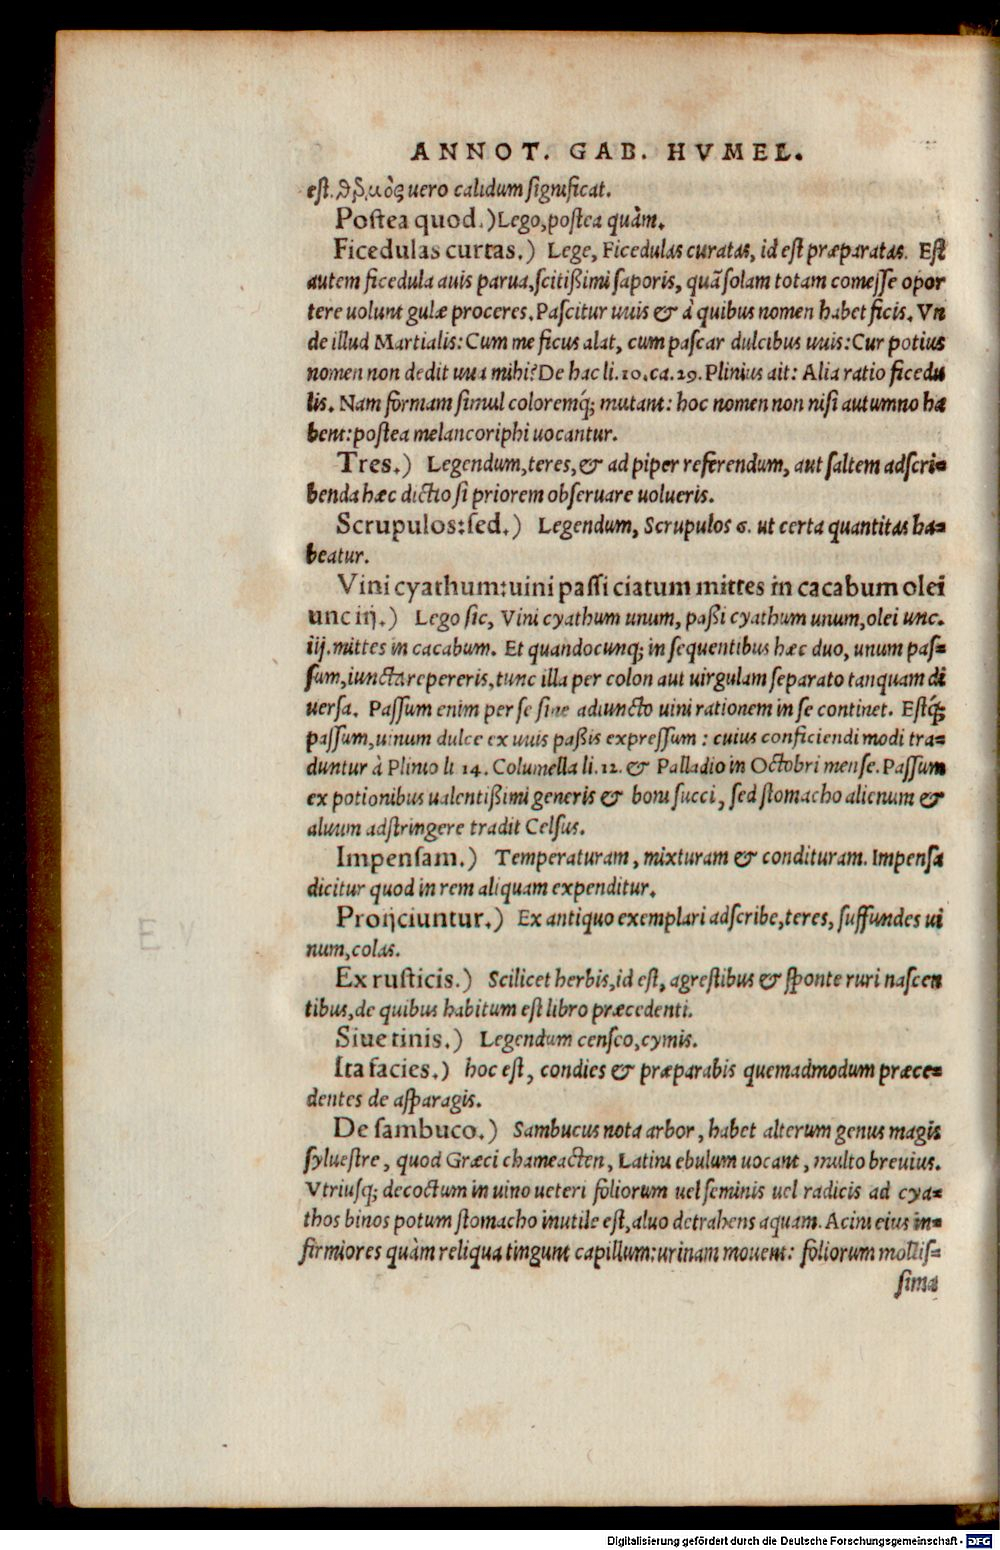 ANNOT. GAB. HVMEL.
est. θερμὸς uero calidum significat.
Postea quod.) Lego, postea quàm.
Ficedulas curtas.) Lege, Ficedulas curatas, id est præparatas. Est
autem ficedula auis parua, scitißimi saporis, quã solam totam comesse opor
tere uolunt gulæ proceres. Pascitur uuis & à quibus nomen habet ficis. Vn
de illud Martialis: Cum me ficus alat, cum pascar dulcibus uuis: Cur potius
nomen non dedit uua mihi? De hac li. 10. ca. 29. Plinius ait: Alia ratio ficedu
lis. Nam formam simul coloremq́; mutant: hoc nomen non nisi autumno ha
bent: postea melancoriphi uocantur.
Tres.) Legendum, teres, & ad piper referendum, aut saltem adscri=
benda hæc dictio si priorem obseruare uolueris.
Scrupulos: sed.) Legendum, Scrupulos 6. ut certa quantitas ha=
beatur.
Vini cyathum: uini passi ciatum mittes in cacabum olei
unc iij.) Lego sic, Vini cyathum unum, paßi cyathum unum, olei unc.
iij. mittes in cacabum. Et quandocunq; in sequentibus hæc duo, unum pas=
sum, iuncta repereris, tunc illa per colon aut uirgulam separato tanquam di
uersa. Passum enim per se sine adiuncto uini rationem in se continet. Estq́;
passum, uinum dulce ex uuis paßis expressum: cuius conficiendi modi tra=
duntur à Plinio li 14. Columella li. 12. & Palladio in Octobri mense. Passum
ex potionibus ualentißimi generis & boni succi, sed stomacho alienum &
aluum adstringere tradit Celsus.
Impensam.) Temperaturam, mixturam & condituram. Impensa
dicitur quod in rem aliquam expenditur.
Proijciuntur.) Ex antiquo exemplari adscribe, teres, suffundes ui
num, colas.
Ex rusticis.) Scilicet herbis, id est, agrestibus & sponte ruri nascen
tibus, de quibus habitum est libro præcedenti.
Siue tinis.) Legendum censeo, cymis.
Ita facies.) hoc est, condies & præparabis quemadmodum præce=
dentes de asparagis.
De sambuco.) Sambucus nota arbor, habet alterum genus magis
syluestre, quod Græci chameacten, Latini ebulum uocant, multo breuius.
Vtriusq; decoctum in uino ueteri foliorum uel seminis uel radicis ad cya=
thos binos potum stomacho inutile est, aluo detrahens aquam. Acini eius in=
firmiores quàm reliqua tingunt capillum: urinam mouent: foliorum mollis=
sima
E.V
Digitalisierung gefördert durch die Deutsche Forschungsgemeinschaft - DFG